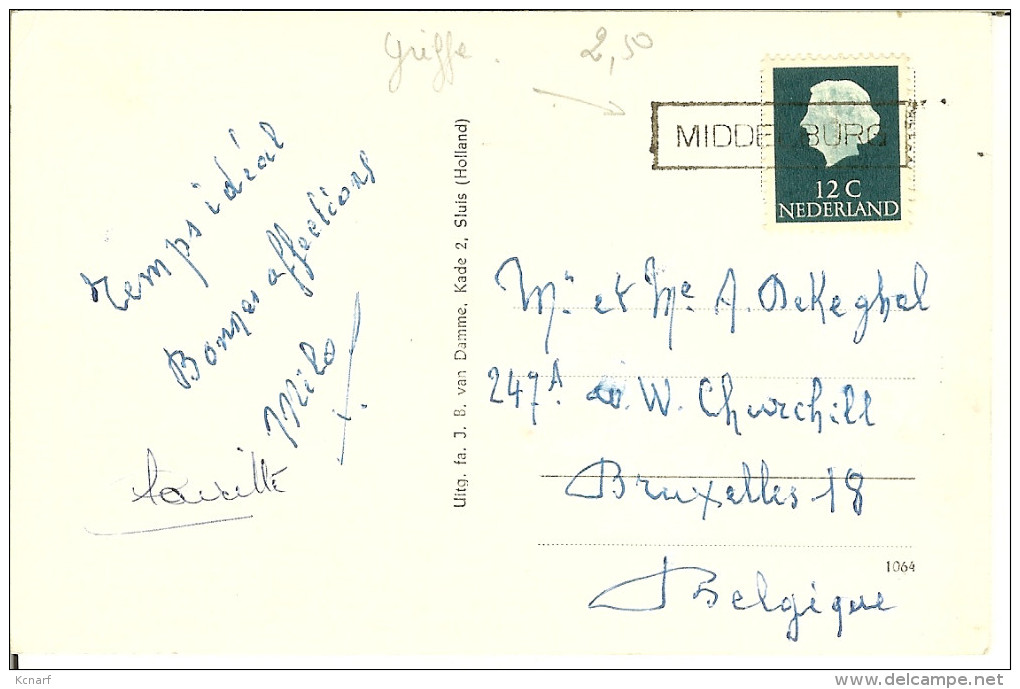 Griffe. 2,50
MIDDELBURG
12 C
NEDERLAND
Temps idéal
Bonnes affections
Milo
Uitg. fa. J. B. van Damme, Kade 2, Sluis (Holland)
Mr et Me A. DeKeghel
247A av. W. Churchill
Bruxelles 18
Belgique
1064
Kcnarf
delcampe.net